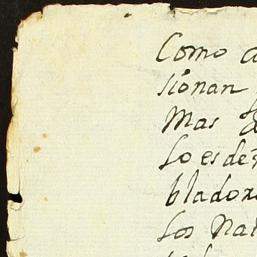 Como
sionan
Mas
lo es de
blador
los Nat